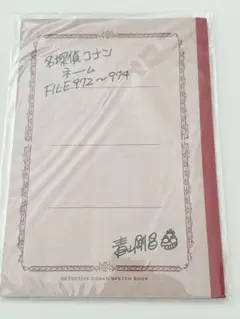 名探偵コナン
ネーム
FILE972〜974
青山剛昌
DETECTIVE CONAN SKETCH BOOK